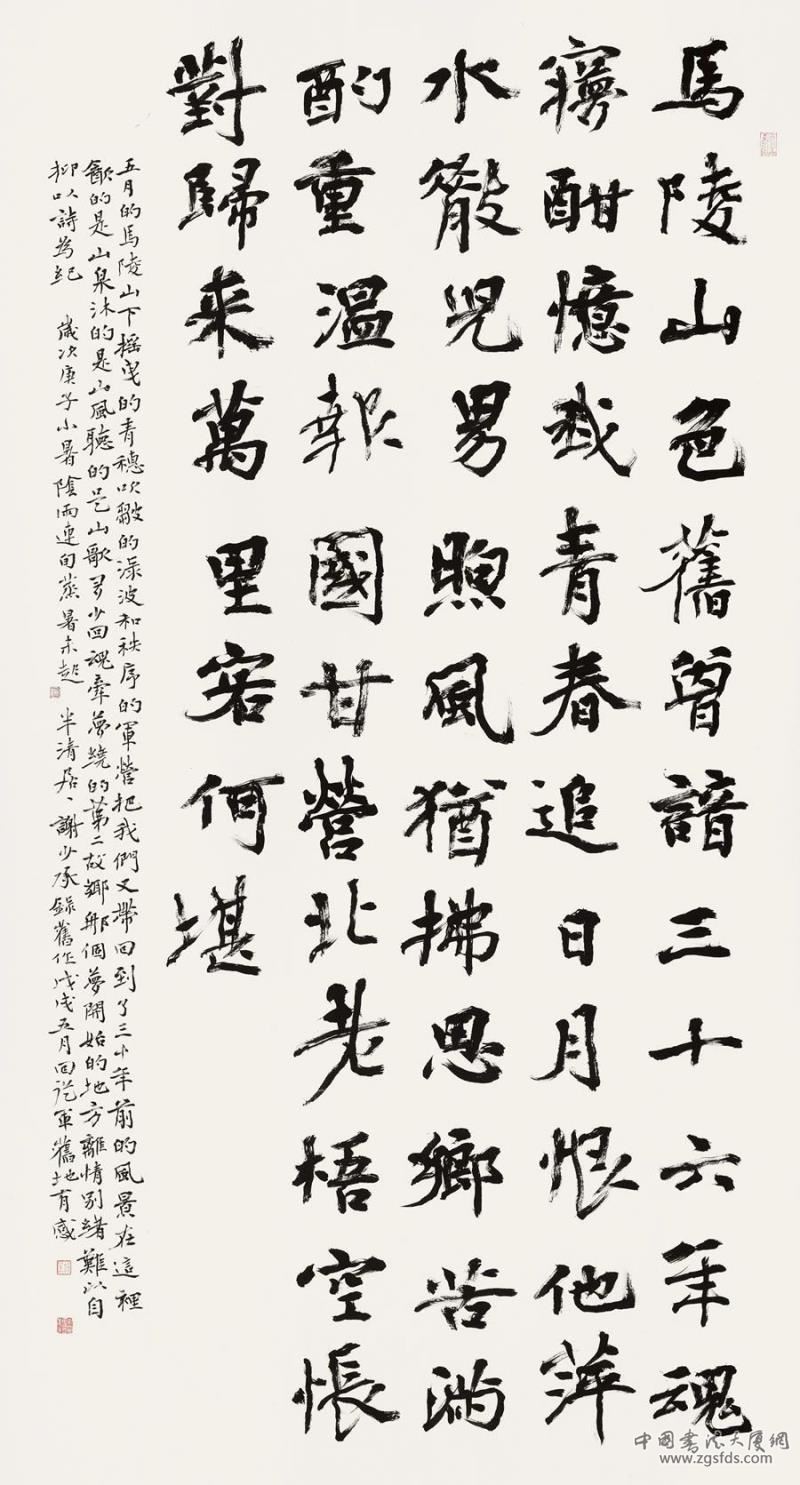 馬陵山色舊曾諳三十六年魂
夢酣憶我青春追日月恨他萍
水散兒男煦風猶拂思鄉苦滿
酌重溫報國甘營北老梧空悵
對歸來萬里客何堪
五月的馬陵山下搖曳的青穗吹皺的淥波和秩序的軍營把我們又帶回到了三十年前的風景在這裡
飲的是山泉沐的是山風聽的是山歌多少回魂牽夢繞的第二故鄉那個夢開始的地方離情別緒難以自
抑以詩為紀 歲次庚子小暑陰雨連旬蒸暑未起 半清居丶謝少承錄舊作戊戌五月回從軍舊地有感
中國書法大厦網
www.zgsfds.com